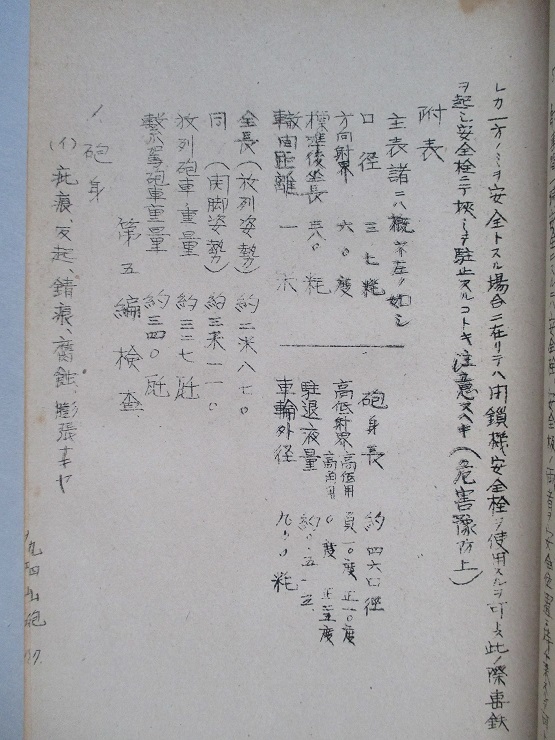 レカ一方ノミヲ安全トスル場合ニ在リテハ閉鎖機安全栓ヲ使用スルヲ可トス此ノ際撃鉄
ヲ起シ安全栓ニテ挾ミテ駐止スルコトヲ注意スヘキ(危害豫防上)
附表
主表諸ニハ概ネ左ノ如シ
口径 三七粍
方向射界 六〇度
標準後坐長 粍
轍間距離 一米
全長(放列姿勢) 約二米八七〇
同(閉脚姿勢) 約三米一一〇
放列砲車重量 約三二七瓩
繋駕砲車重量 約三四〇瓩
砲身長 約四六口径
高低射界 高低用 負一〇度 正一〇度
高角用 〇度 度
駐退液量 約〇.五
車輪外径 九〇〇粍
第五編 検査
1、砲身
(イ) 疵痕、反起、錆痕、腐蝕、膨張ナキヤ
九四山砲